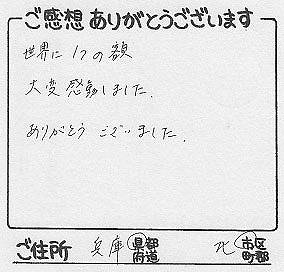 ご感想ありがとうございます
世界に1つの額
大変感動しました.
ありがとう ございました.
ご住所 兵庫 県都府道 北 市区町郡